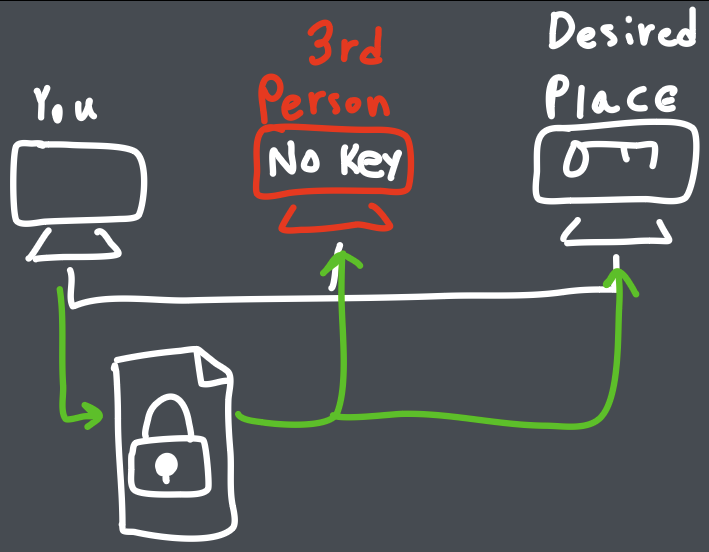 You
3rd
Person
No Key
Desired
Place